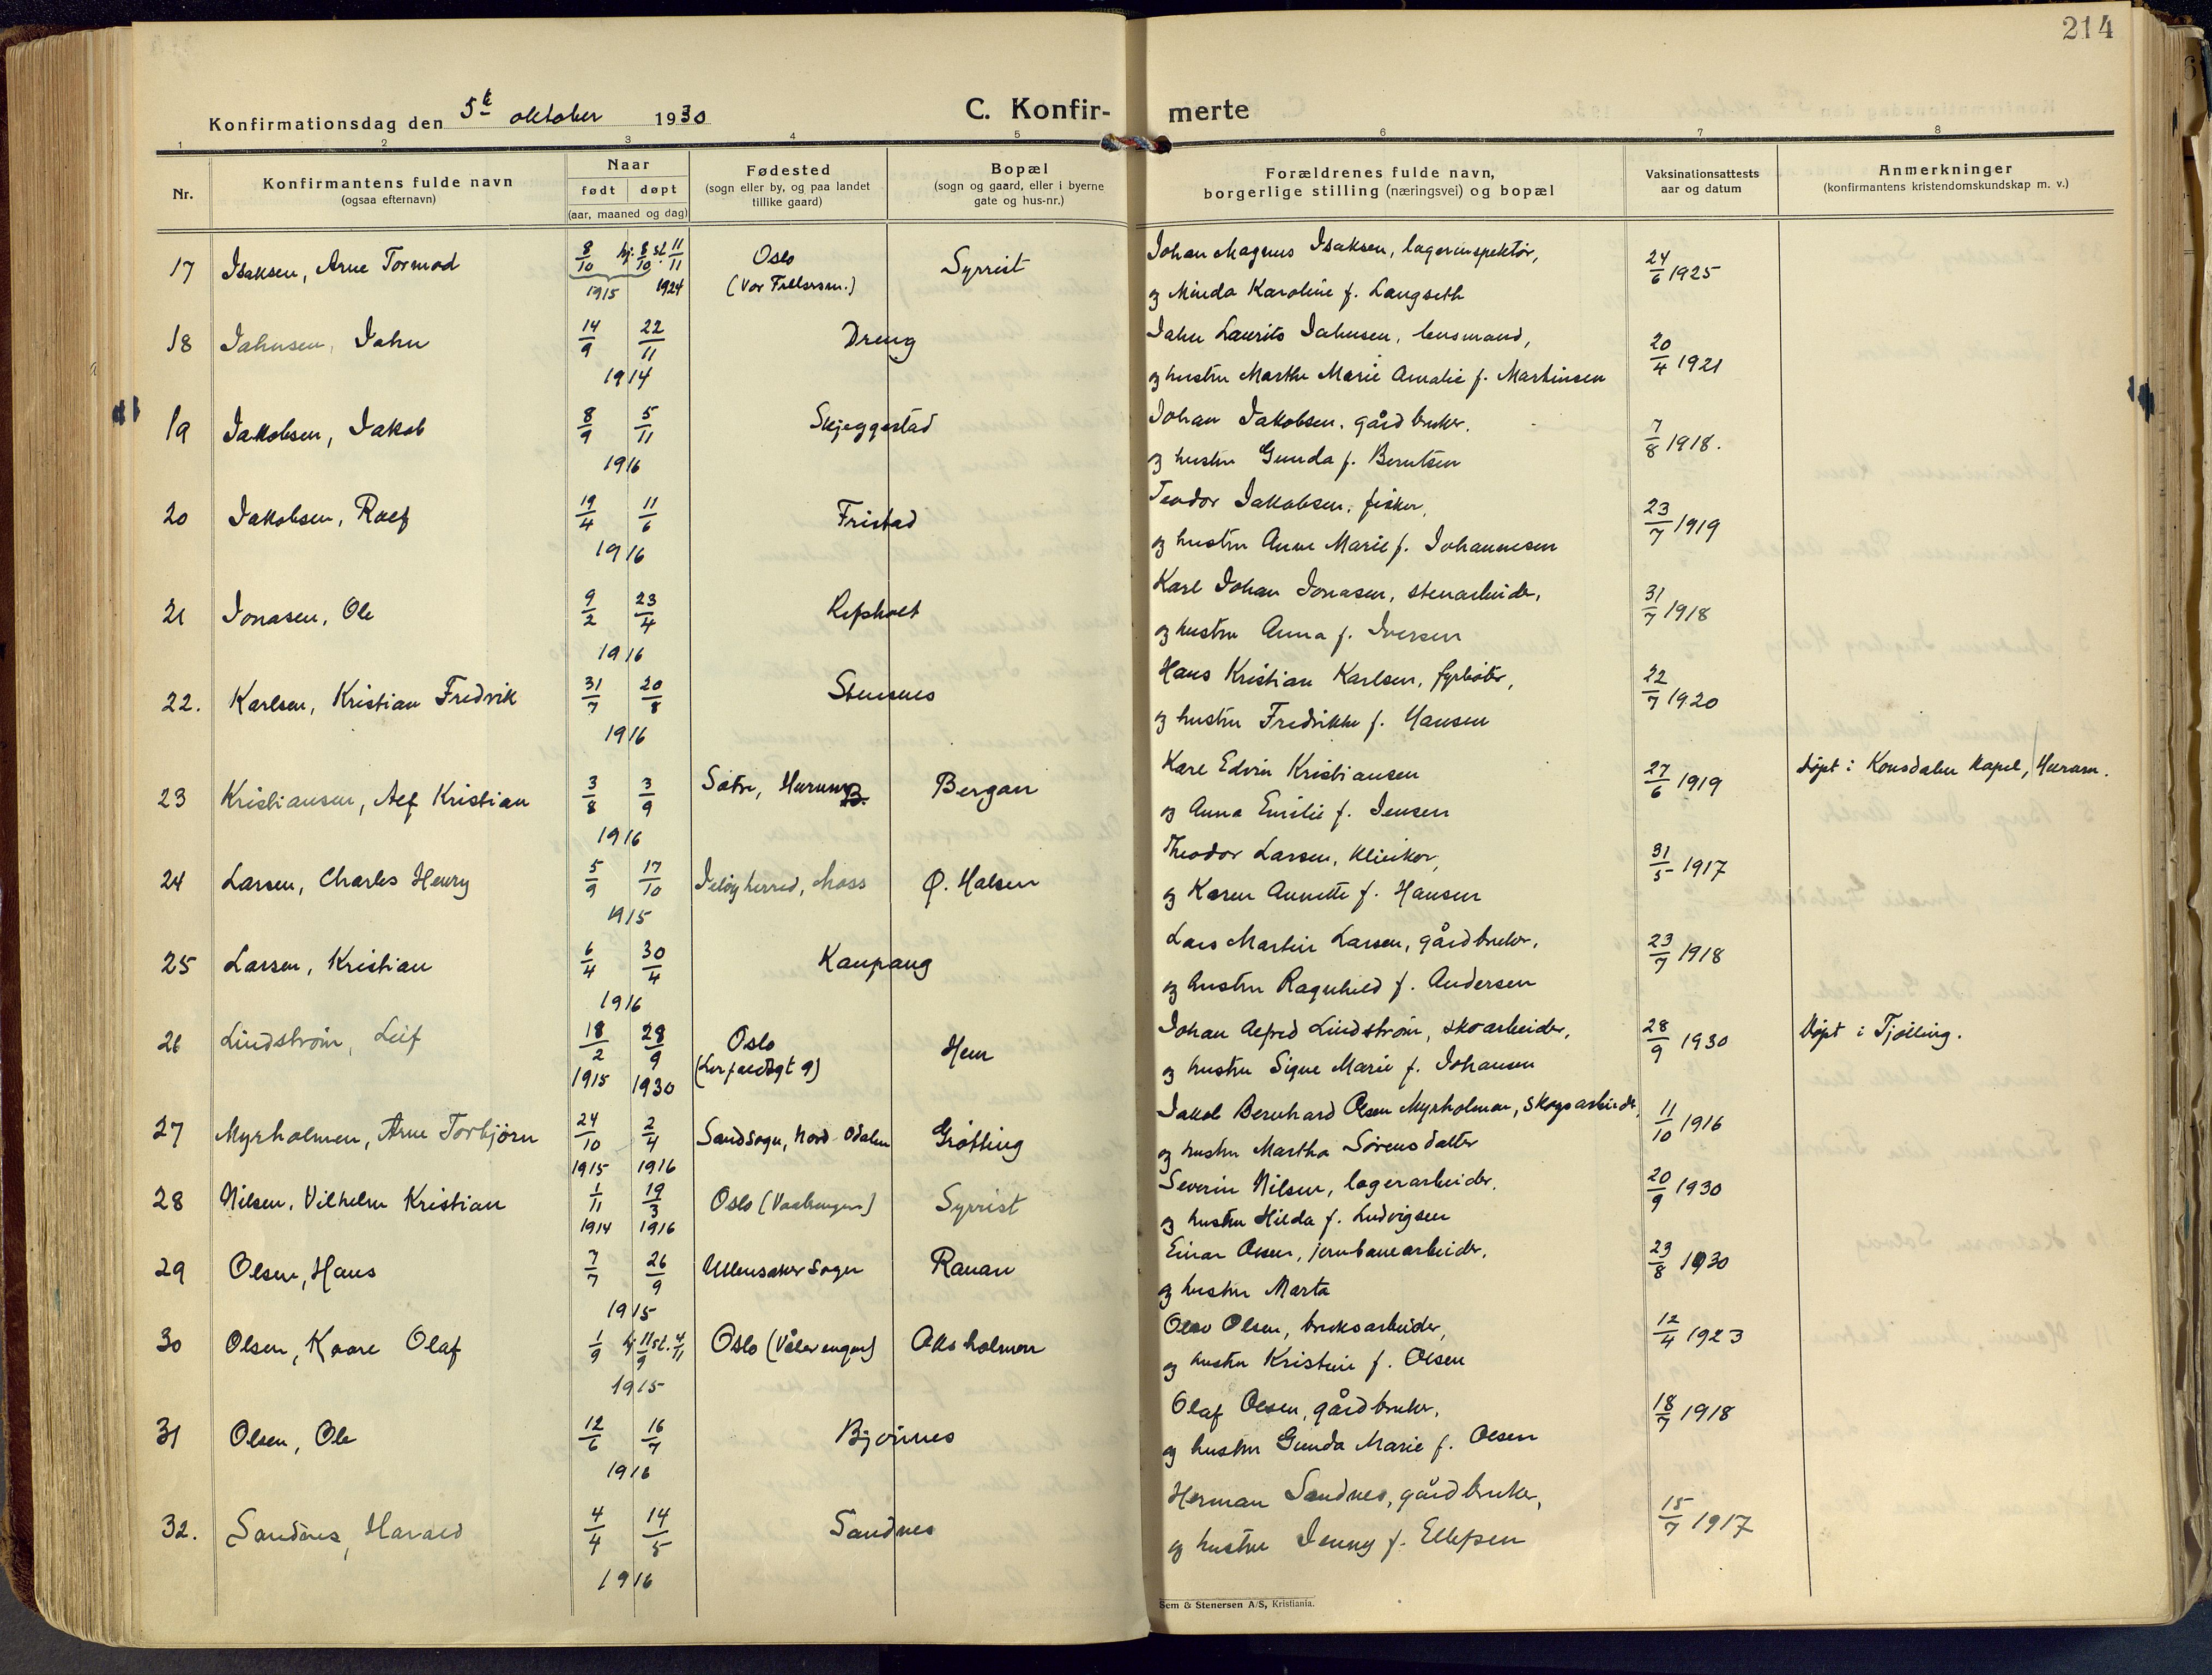 214
Konfirmationsdag den 5te oktober 1930
C. Konfir- merte
1 2 3 4 5 6 7 8
Nr.
Konfirmantens fulde navn
(ogsaa efternavn)
Naar
født døpt
(aar, maaned og dag)
Fødested
(sogn eller by, og paa landet
tillike gaard)
Bopæl
(sogn og gaard, eller i byerne
gate og hus-nr.)
Forældrenes fulde navn,
borgerlige stilling (næringsvei) og bopæl
Vaksinationsattests
aar og datum
Anmerkninger
(konfirmantens kristendomskundskap m. v.)
17 Isaksen, Arne Tormod 8/10 hj. 8/10 st. 11/11 Oslo Syrrist Johan Magnus Isaksen, lagerinspektør, 24/6 1925
1915 1924 (Vor Frelsersm.) og Minda Karoline f. Langseth
18 Jahnsen, Jahn 14/9 22/11 Dreng Jahn Laurits Jahnsen, lensmand, 20/4 1921
1914 og hustru Marthe Marie Amalie f. Martinsen
19 Jakobsen, Jakob 8/9 5/11 Skjeggestad Johan Jakobsen, gårdbruker. 7/8 1918.
1916 og hustru Gunda f. Berntsen
20 Jakobsen, Rolf 19/4 11/6 Fristad Teodor Jakobsen, fisker, 23/7 1919
1916 og hustru Anne Marie f. Johannesen
21 Jonasen, Ole 9/2 23/4 Refsholt Karl Johan Jonasen, stenarbeider, 31/7 1918
1916 og hustru Anna f. Iversen
22. Karlsen, Kristian Fredrik 31/7 20/8 Stensnes Hans Kristian Karlsen, fyrbøter, 22/7 1920
1916 og hustru Fredrikke f. Hansen
23 Kristiansen, Alf Kristian 3/8 3/9 Sætre, Hurum Bergan Karl Edvin Kristiansen 27/6 1919 døpt i Konsdalen kapel, Hurum.
1916 og Anna Emilie f. Jensen
24 Larsen, Charles Henry 5/9 17/10 Jeløy herred, Moss Ø. Halsen Theodor Larsen, klinker, 31/5 1917
1915 og Karen Annette f. Hansen
25 Larsen, Kristian 6/4 30/4 Kaupang Lars Martin Larsen, gårdbruker, 23/7 1918
1916 og hustru Ragnhild f. Andersen
26 Lindstrøm, Leif 18/2 28/9 Oslo Hem Johan Alfred Lindstrøm, skoarbeider, 28/9 1930 Døpt i Tjølling.
1915 1930 og hustru Signe Marie f. Johansen
27 Myrholmen, Arne Torbjørn 24/10 2/4 Sand sogn, Nord-Odalen Grøtting Jakob Bernhard Olsen Myrholmen, skogsarbeider, 11/10 1916
1915 1916 og hustru Martha Sørensdatter
28 Nilsen, Vilhelm Kristian 1/11 19/3 Oslo (Vaalerengen) Syrrist Severin Nilsen, lagerarbeider, 20/9 1930
1914 1916 og hustru Hilda f. Ludvigsen
29 Olsen, Hans 7/7 26/9 Ullensaker sogn Rauan Einar Olsen, jernbanearbeider, 23/8 1930
1915 og hustru Marta
30 Olsen, Kaare Olaf 1/9 hj. 11/9 st. 4/11 Oslo (Vålerengen) Aksholmen Olav Olsen, bruksarbeider, 12/4 1923
1915 og hustru Kristine f. Olsen
31 Olsen, Ole 12/6 16/7 Bjønnes Olaf Olsen, gårdbruker, 18/7 1918
1916 og hustru Gunda Marie f. Olsen
32. Sandnes, Harald 4/4 14/5 Sandnes Herman Sandnes, gårdbruker, 15/7 1917
1916 og hustru Jenny f. Ellefsen
Sem & Stenersen A/S, Kristiania.